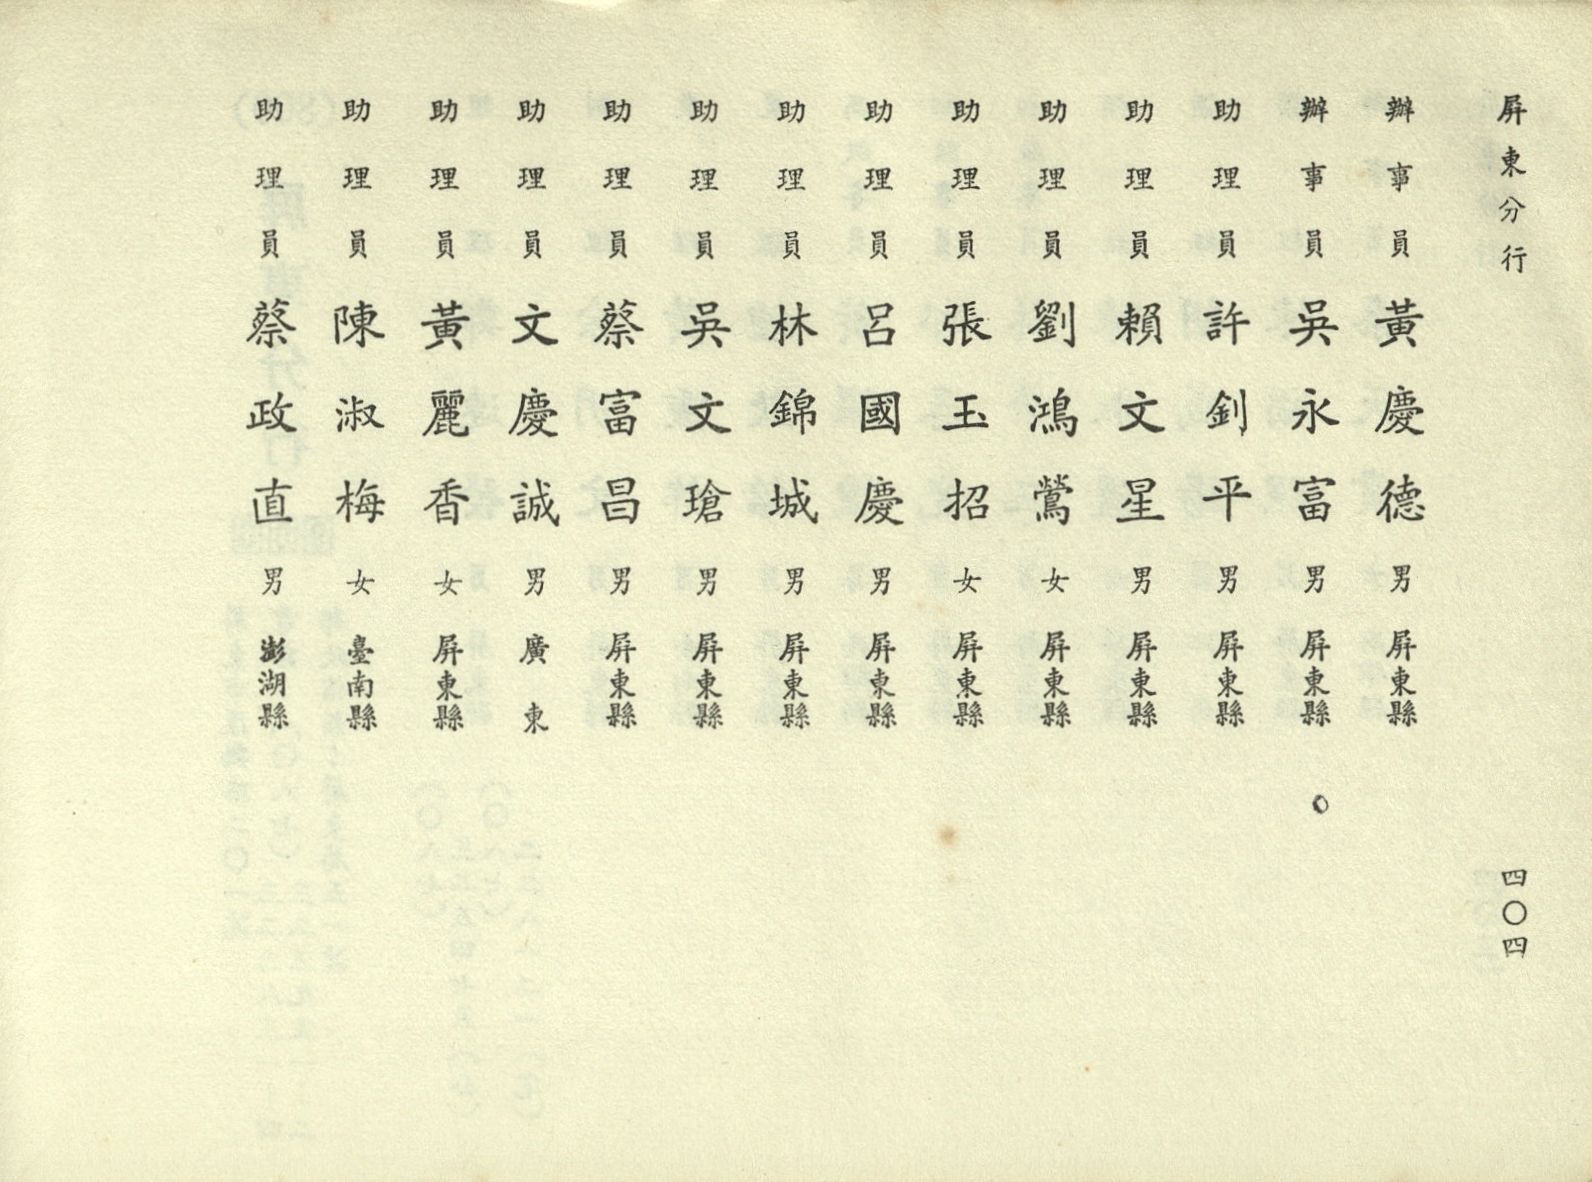 屏東分行
四〇四
辦事員 黃慶德 男 屏東縣
辦事員 吳永富 男 屏東縣
助理員 許釗平 男 屏東縣
助理員 賴文星 男 屏東縣
助理員 劉鴻鶯 女 屏東縣
助理員 張玉招 女 屏東縣
助理員 呂國慶 男 屏東縣
助理員 林錦城 男 屏東縣
助理員 吳文瑲 男 屏東縣
助理員 蔡富昌 男 屏東縣
助理員 文慶誠 男 廣東
助理員 黃麗香 女 屏東縣
助理員 陳淑梅 女 臺南縣
助理員 蔡政直 男 澎湖縣